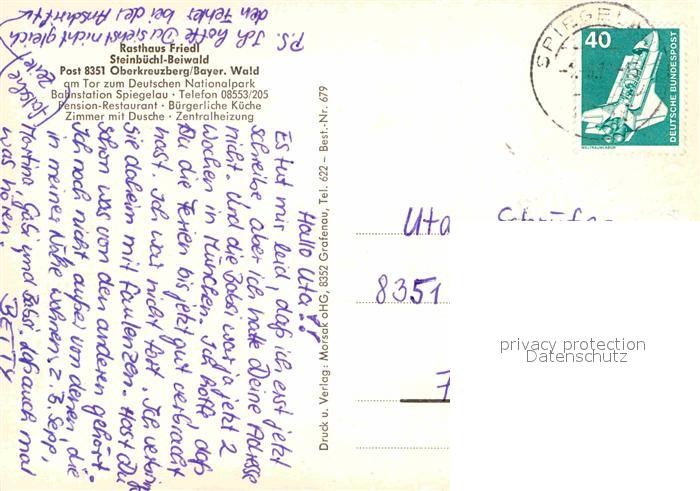 Rasthaus Friedl
Steinbüchl-Beiwald
Post 8351 Oberkreuzberg/Bayer. Wald
am Tor zum Deutschen Nationalpark
Bahnstation Spiegelau · Telefon 08553/205
Pension-Restaurant · Bürgerliche Küche
Zimmer mit Dusche · Zentralheizung
Hallo Uta!
Es tut mir leid, daß ich erst jetzt
schreibe aber ich hatte Deine Adresse
nicht. Und die Babsi war ja jetzt 2
Wochen in München. Ich hoffe, daß
Du die Ferien bis jetzt gut verbracht
hast. Ich war nicht fort. Ich verbring
sie daheim mit Faulenzen. Hast Du
schon was von den anderen gehört
Ich noch nicht außer von denen die
in meiner Nähe wohnen, z.B. Sepp,
Martina, Gabi und Babsi. Laß auch mal
was hören.
BETTY
P.S. Ich hoffe Du siehst nicht gleich
den Fehler bei der Anschrift
(falsche Zeile)
Druck u. Verlag: Morsak oHG, 8352 Grafenau, Tel. 622 – Best.-Nr. 679
SPIEGELAU
40
DEUTSCHE BUNDESPOST
WELTRAUMLABOR
Uta
8351
7
privacy protection
Datenschutz